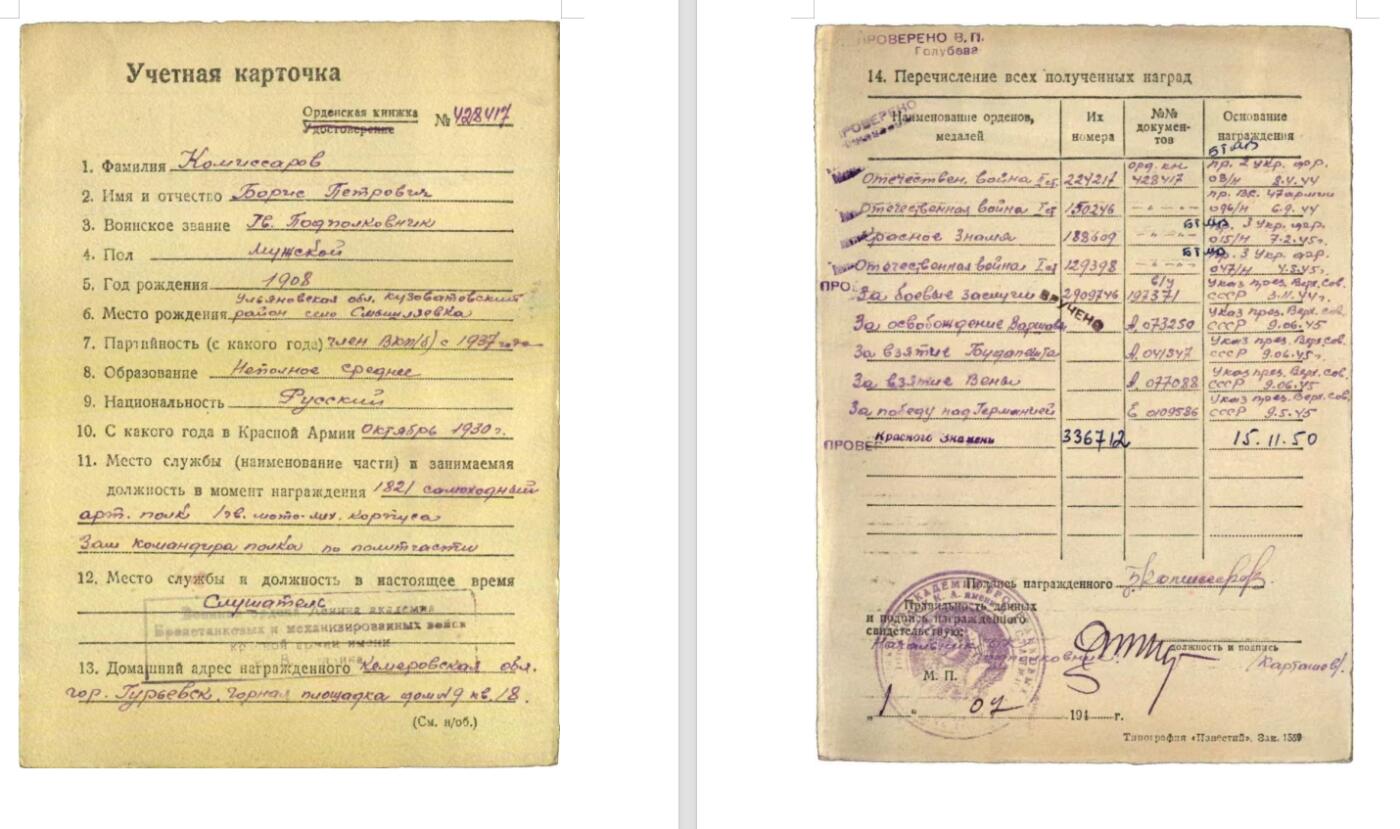 Учетная карточка
Орденская книжка
Удостоверение
№ 428417
1. Фамилия Комиссаров
2. Имя и отчество Борис Петрович
3. Воинское звание Гв. Подполковник
4. Пол Мужской
5. Год рождения 1908
Ульяновская обл. Кузоватовский
6. Место рождения район село Смышляевка
7. Партийность (с какого года) член ВКП(б) с 1937 года
8. Образование Неполное среднее
9. Национальность Русский
10. С какого года в Красной Армии Октябрь 1930 г.
11. Место службы (наименование части) и занимаемая
должность в момент награждения 1821 самоходный
арт. полк 1 гв. мото-мех. корпуса
Зам командира полка по политчасти
12. Место службы и должность в настоящее время
Слушатель
ордена Ленина академия
Бронетанковых и механизированных войск
красной армии имени
13. Домашний адрес награжденного Кемеровская обл.
гор. Гурьевск. Горная площадка дом № 9 кв. 18.
(См. н/об.)
ПРОВЕРЕНО В. П.
Голубева
14. Перечисление всех полученных наград
ПРОВЕРЕНО
Наименование орденов, медалей
Их номера
№№ документов
Основание награждения
БТ и МВ
Отечествен. война I ст. 224217 орд. кн. 428417 пр. 2 Укр. фр. 08/н 8.4.44
Отечественная война I ст 150246 — " — " — пр. ВС. 47 армии 096/н 6.9.44
Красное Знамя 188609 — " — " — БТ и МВ пр. 3 Укр. фр. 015/н 7.2.45г.
Отечественная война I ст 129398 — " — " — БТ и МВ пр. 3 Укр. фр. 047/н 4.5.45г.
ПРО
За боевые заслуги 2909746 б/у 197371 Указ през. Верх. Сов. СССР 3.11.44г.
ВРУЧЕНО
За освобождение Варшавы А 073250 Указ през. Верх. Сов. СССР 9.06.45
За взятие Будапешта А 041347 Указ през. Верх. Сов. СССР 9.06.45г.
За взятие Вены А 077088 Указ през. Верх. Сов. СССР 9.06.45
За победу над Германией Е 0109586 Указ през. Верх. Сов. СССР 9.5.45
ПРОВЕР
Красного Знамень 336712 15.11.50
Подпись награжденного Б Комиссаров
Правильность данных
и подпись награжденного
свидетельствую:
Начальник
должность и подпись
(Карташов)
М. П.
„1“ 07 194 г.
Типография «Известий». Зак. 1559